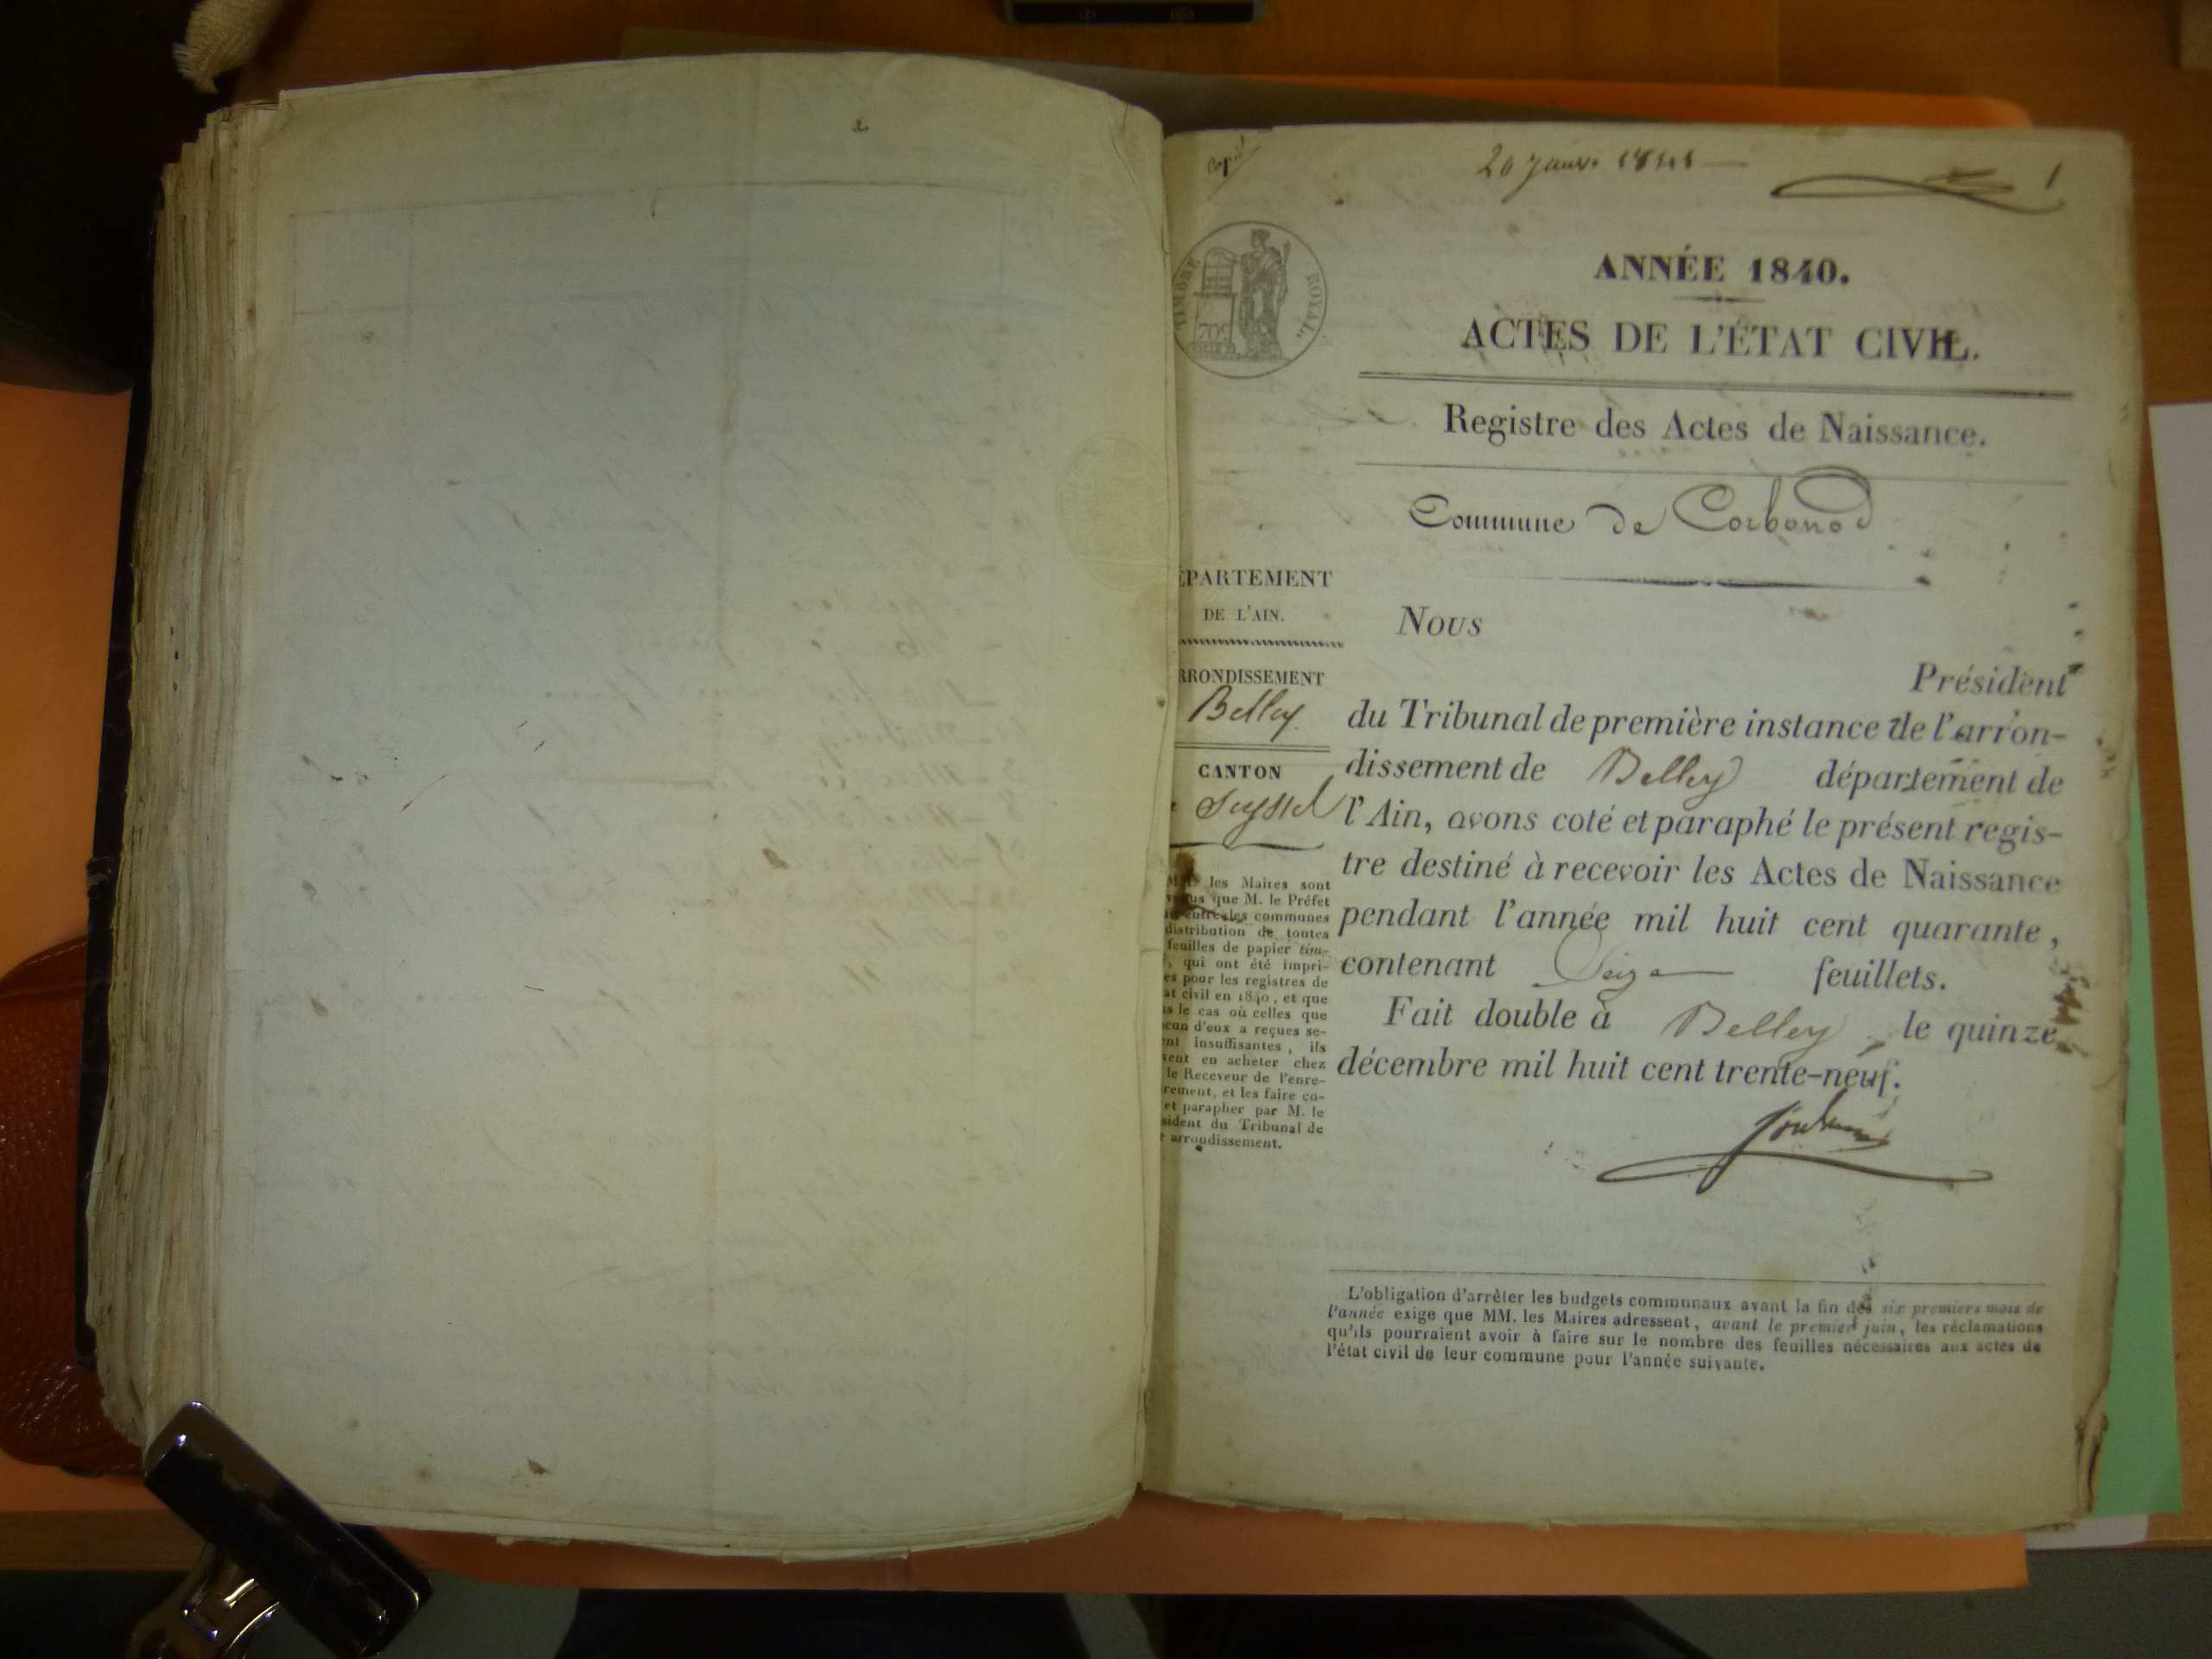 1
ANNÉE 1840.
ACTES DE L'ÉTAT CIVIL.
TIMBRE ROYAL.
70
Registre des Actes de Naissance.
Commune de Corbonod
ÉPARTEMENT
DE L'AIN.
RRONDISSEMENT
Belley.
CANTON
Seyssel
les Maires sont
que M. le Préfet
entre les communes
distribution de toutes
feuilles de papier tim-
, qui ont été impri-
es pour les registres de
at civil en 1840, et que
s le cas où celles que
cun d'eux a reçues se-
ent insuffisantes, ils
vent en acheter chez
le Receveur de l'enre-
rement, et les faire co-
et parapher par M. le
sident du Tribunal de
r arrondissement.
Nous
Président
du Tribunal de première instance de l'arron-
dissement de Belley département de
l'Ain, avons coté et paraphé le présent regis-
tre destiné à recevoir les Actes de Naissance
pendant l'année mil huit cent quarante,
contenant Seize feuillets.
Fait double à Belley, le quinze
décembre mil huit cent trente-neuf.
L'obligation d'arrêter les budgets communaux avant la fin des six premiers mois de
l'année exige que MM. les Maires adressent, avant le premier juin, les réclamations
qu'ils pourraient avoir à faire sur le nombre des feuilles nécessaires aux actes de
l'état civil de leur commune pour l'année suivante.